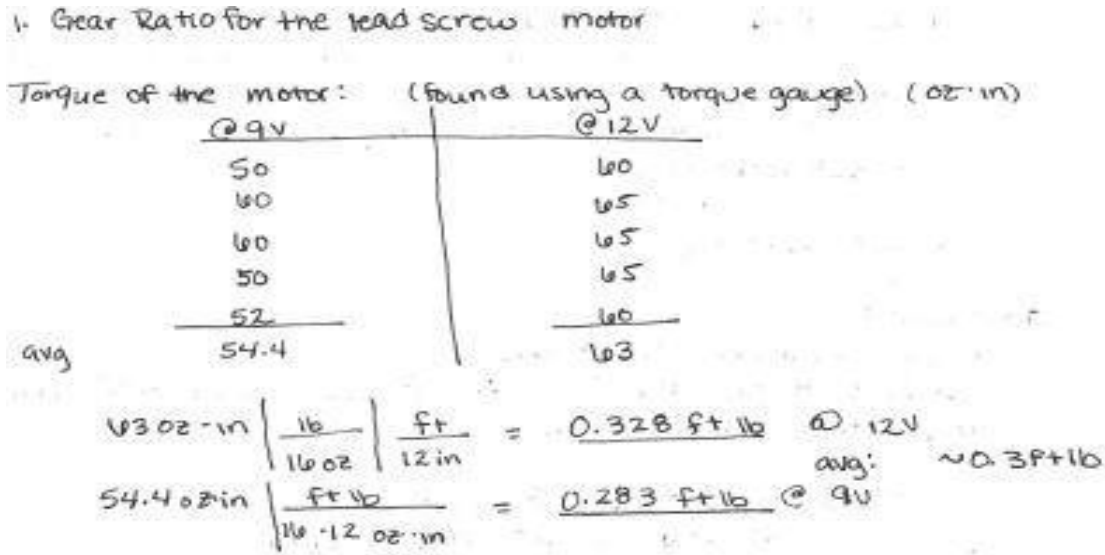 1. Gear Ratio for the lead screw motor
Torque of the motor: (found using a torque gauge) (oz·in)
@ 9V @ 12V
50 60
60 65
60 65
50 65
52 60
avg 54.4 63
63 oz-in | lb / 16 oz | ft / 12 in = 0.328 ft lb @ 12V
avg: ~0.3ft lb
54.4 oz·in | ft lb / 16·12 oz·in = 0.283 ft lb @ 9V